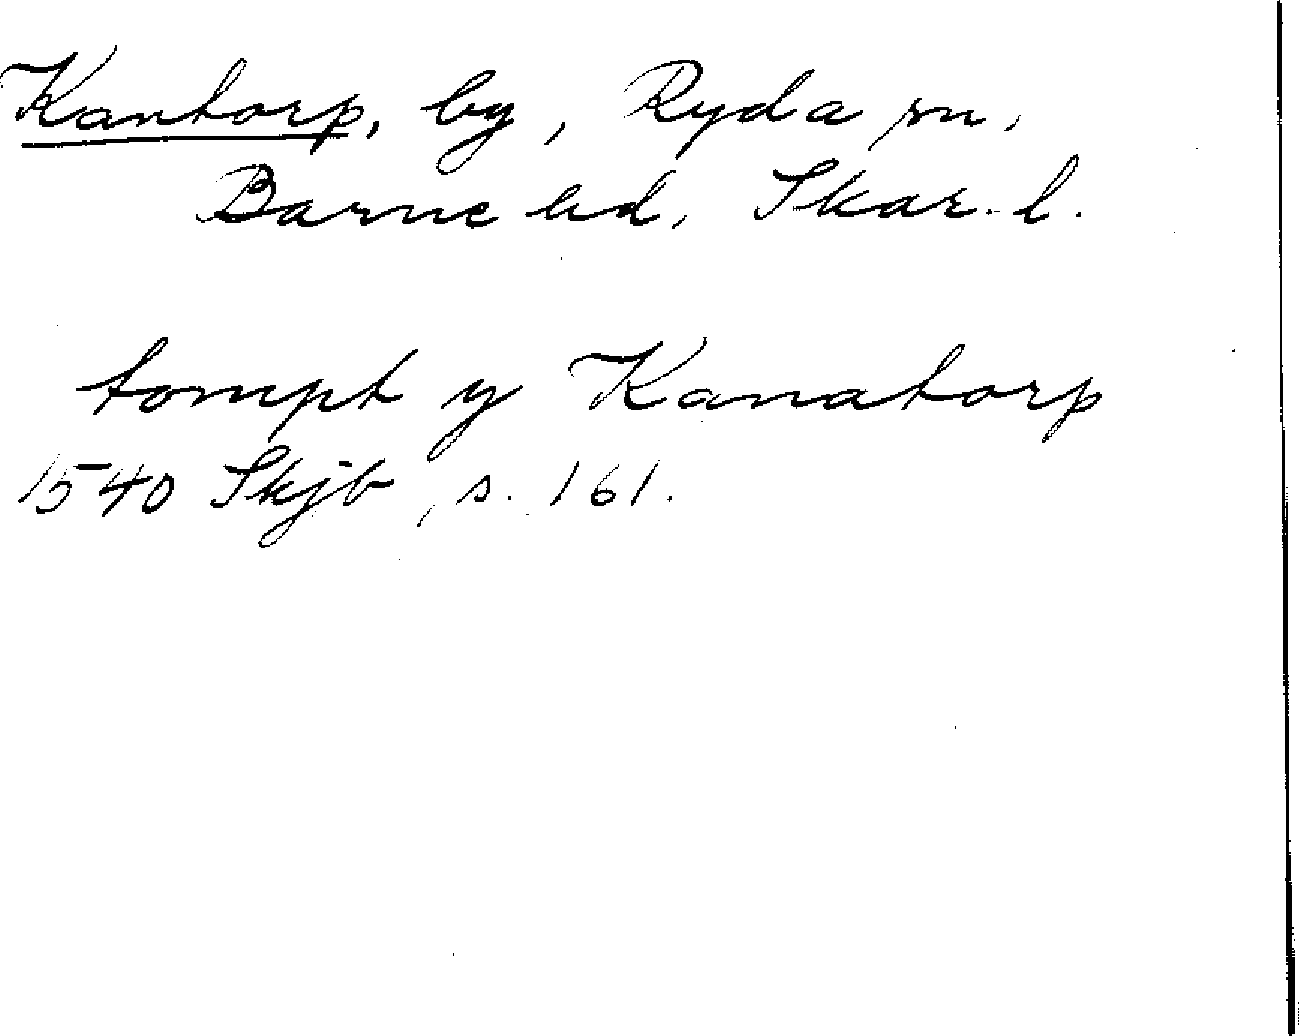 Kantorp, by, Ryda sn,
Barne hd, Skar. l.
tompt y Kanatorp
1540 Skjb, s. 161.